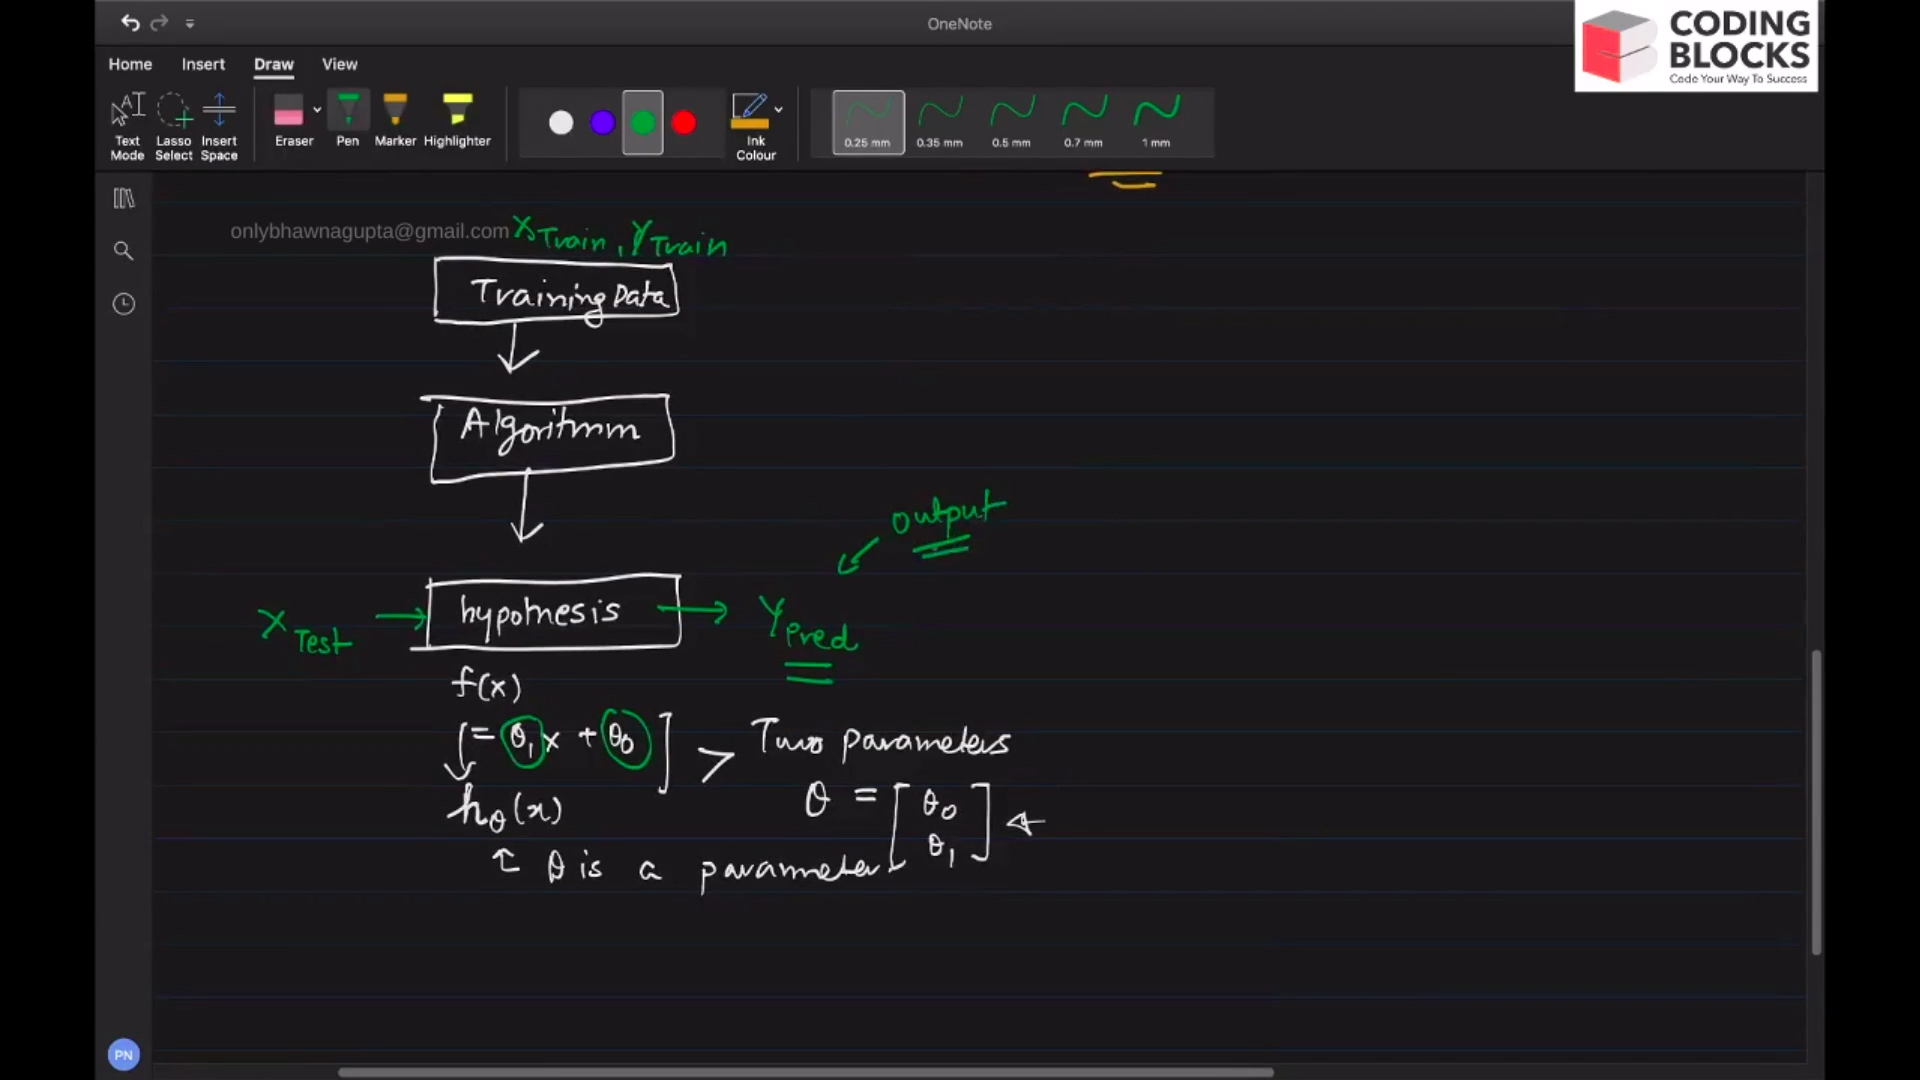 OneNote
CODING
BLOCKS
Code Your Way To Success
Home Insert Draw View
Text Mode
Lasso Select
Insert Space
Eraser
Pen
Marker
Highlighter
Ink Colour
0.25 mm
0.35 mm
0.5 mm
0.7 mm
1 mm
onlybhawnagupta@gmail.com
X Train, Y Train
Training Data
Algorithm
output
X Test → hypothesis → Y Pred
f(x)
= θ₁x + θ₀ ] > Two parameters
hθ(x) θ = [θ₀ θ₁]
θ is a parameter
PN